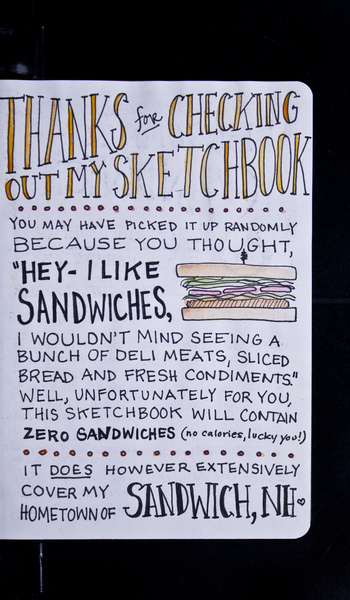 THANKS for CHECKING
OUT MY SKETCHBOOK
YOU MAY HAVE PICKED IT UP RANDOMLY
BECAUSE YOU THOUGHT,
"HEY- I LIKE
SANDWICHES,
I WOULDN'T MIND SEEING A
BUNCH OF DELI MEATS, SLICED
BREAD AND FRESH CONDIMENTS."
WELL, UNFORTUNATELY FOR YOU,
THIS SKETCHBOOK WILL CONTAIN
ZERO SANDWICHES (no calories, lucky you!)
IT DOES HOWEVER EXTENSIVELY
COVER MY
HOMETOWN OF SANDWICH, NH